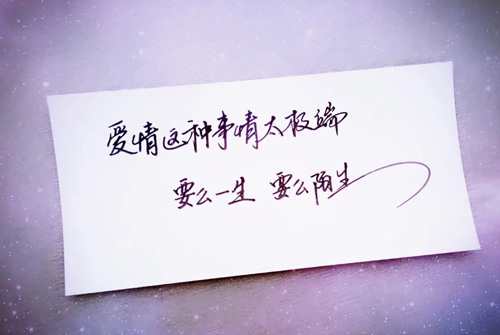 爱情这种事情太极端
要么一生 要么陌生